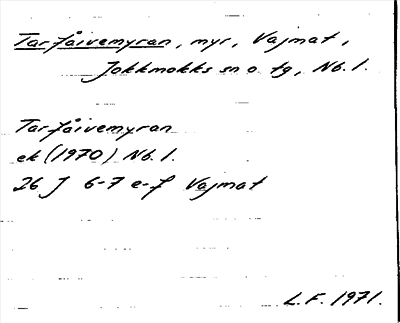 Tarfåivemyran, myr, Vajmat,
Jokkmokks sn o tg, Nb. l.
Tarfåivemyran
ek (1970) Nb. l.
26 J 6-7 e-f Vajmat
L.F. 1971.